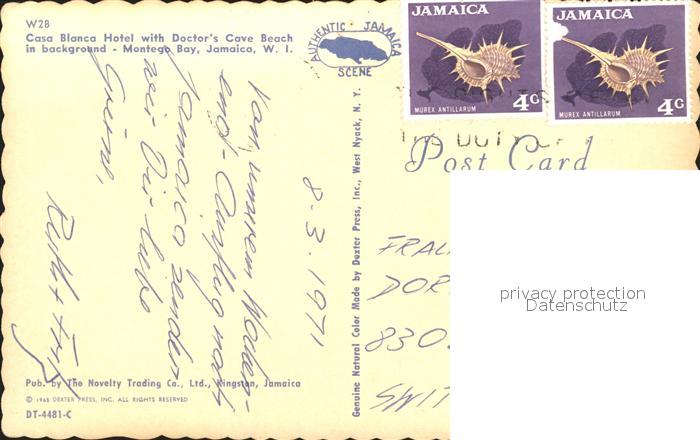 W28
Casa Blanca Hotel with Doctor's Cave Beach
in background - Montego Bay, Jamaica, W. I.
AUTHENTIC JAMAICA
SCENE
JAMAICA
MUREX ANTILLARUM
4c
JAMAICA
MUREX ANTILLARUM
4c
Post Card
8.3.1971
Von unserem Wochen-
end-Ausflug nach
Jamaica senden
wir Dir liebe
Grüsse,
Genuine Natural Color Made by Dexter Press, Inc., West Nyack, N. Y.
DOR
830
SWIT
privacy protection
Datenschutz
Pub. by The Novelty Trading Co., Ltd., Kingston, Jamaica
© 1965 DEXTER PRESS, INC. ALL RIGHTS RESERVED
DT-4481-C